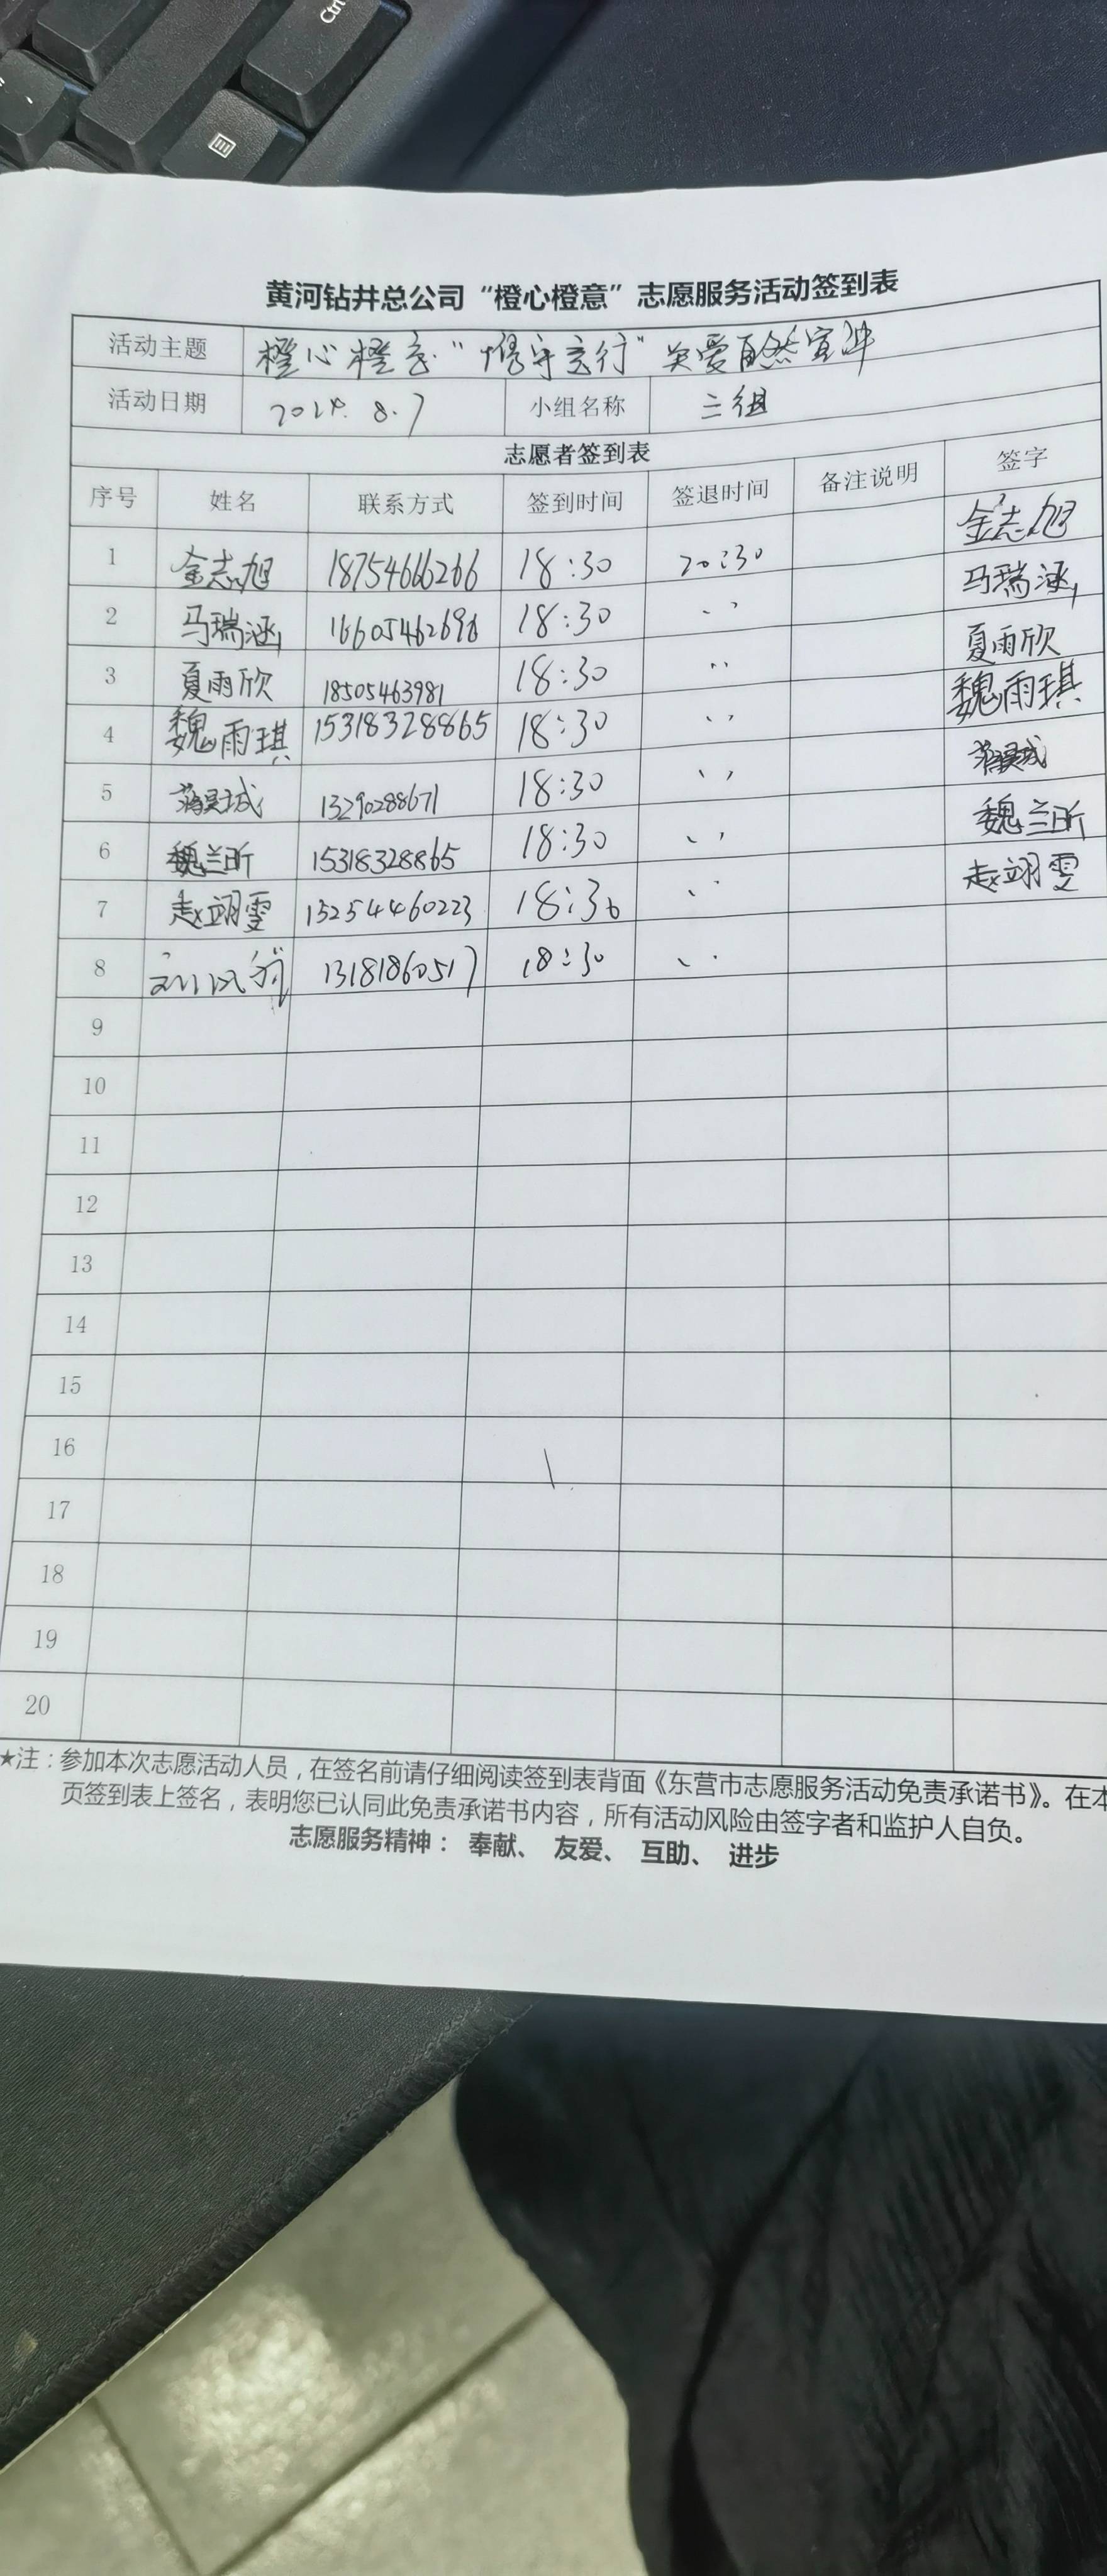 Ctrl
黄河钻井总公司“橙心橙意”志愿服务活动签到表
活动主题 橙心橙意“ 关爱自然宣讲
活动日期 2024. 8. 7 小组名称 三组
志愿者签到表
序号 姓名 联系方式 签到时间 签退时间 备注说明 签字
1 金志旭 18754666266 18:30 20:30 金志旭
2 马瑞涵 18:30 〃 马瑞涵
3 夏雨欣 18505463981 18:30 〃 夏雨欣
4 魏雨琪 15318328865 18:30 〃 魏雨琪
5 13290288671 18:30 〃
6 魏兰昕 15318328865 18:30 〃 魏兰昕
7 赵翊雯 15254460223 18:30 〃 赵翊雯
8 13181860517 18:30 〃
9
10
11
12
13
14
15
16
17
18
19
20
★注：参加本次志愿活动人员，在签名前请仔细阅读签到表背面《东营市志愿服务活动免责承诺书》。在本
页签到表上签名，表明您已认同此免责承诺书内容，所有活动风险由签字者和监护人自负。
志愿服务精神： 奉献、 友爱、 互助、 进步